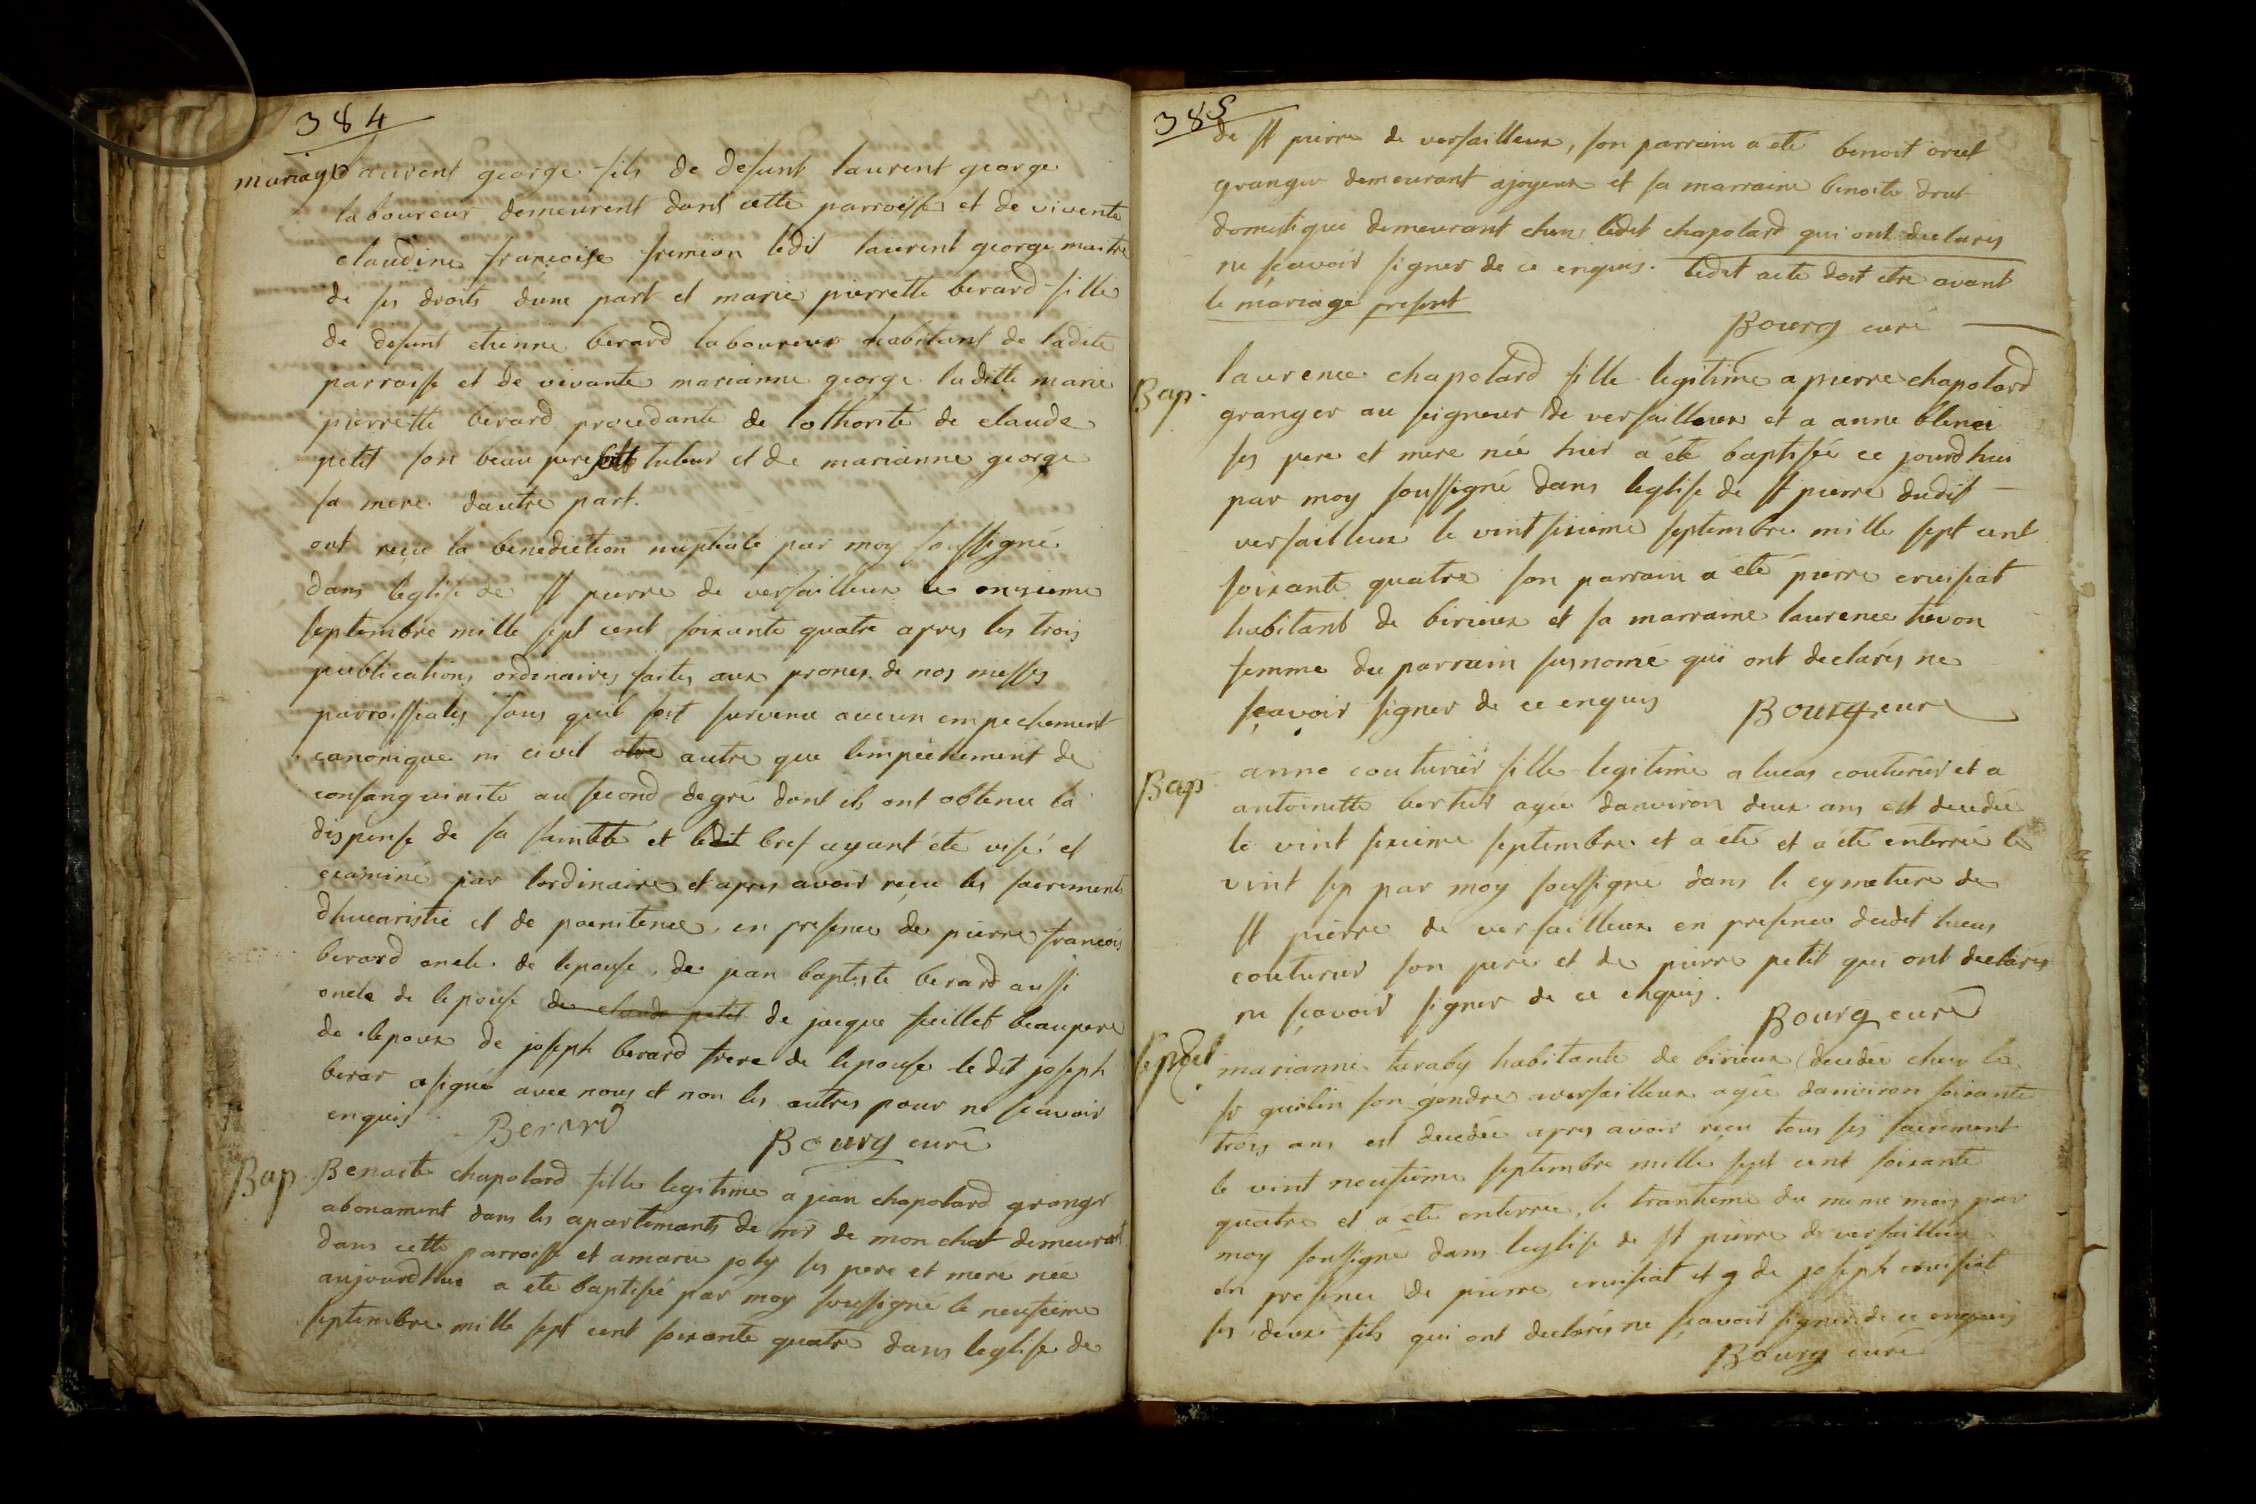 384
mariage laurent george fils de defunt laurent george
laboureur demeurent dans cette parroisse et de vivente
claudine françoise fremion ledit laurent george maitre
de ses droits dune part et marie pierrette berard fille
de defunt etienne berard laboureur habitant de ladite
parroisse et de vivante marianne george laditte marie
pierrette berard procedante de lothorité de claude
petit son beau pere et tuteur et de marianne george
sa mere dautre part.
ont reçu la benediction nuptiale par moy soussigné
dans leglise de st pierre de versailleux le onzieme
septembre mille sept cent soixante quatre apres les trois
publications ordinaires faites aux prones de nos messes
parroissiales sans quil soit survenu aucun empechement
canonique ni civil autre que lempechement de
consanguinité au second degré dont ils ont obtenu la
dispense de sa sainteté et ledit bref ayant été visé et
examiné par lordinaire et apres avoir reçu les sacrements
dhucaristie et de poenitence, en presence de pierre françois
berard oncle de lepouse, de jean baptiste berard aussi
oncle de lepouse de claude petit de jacque feillet beaupere
de lepoux de joseph berard frere de lepouse ledit joseph
berar a signé avec nous et non les autres pour ne scavoir
enquis Berard Bourg curé
Bap. Benoite chapolard fille legitime a jean chapolard granger
abonament dans les apartemants de mr de mon chat demeurant
dans cette parroisse et a marie joly ses pere et mere née
aujourdhui a été baptisé par moy soussigné le neufieme
septembre mille sept cent soixante quatre dans leglise de
385
de st pierre de versailleux, son parrain a été benoit oriet
granger demeurant a joyeux et sa marraine benoite drut
domestique demeurant chez ledit chapolard qui ont declarés
ne sçavoir signer de ce enquis. ledit acte doit etre avant
le mariage present
Bourg curé
Bap. laurence chapolard fille legitime a pierre chapolard
granger au seigneur de versailleux et a anne blenci
ses pere et mere née hier a été baptisée ce jourdhui
par moy soussigné dans leglise de st pierre dudit
versailleux le vint sixieme septembre mille sept cent
soixante quatre son parrain a été pierre cruisiat
habitant de birieux et sa marraine laurence tievon
femme du parrain susnomé qui ont declarés ne
sçavoir signer de ce enquis Bourg curé
Bap anne couturier fille legitime a lucas couturier et a
antoinette bertier agée danviron deux ans est decedée
le vint sixieme septembre et a été et a été enterrée le
vint sep par moy soussigné dans le cymetiere de
st pierre de versailleux en presence dudit lucas
couturier son pere et de pierre petit qui ont declarés
ne sçavoir signer de ce enquis. Bourg curé
marianne taraby habitante de birieux decedée chez le
sr guilin son gendre a versailleux agée danviron soixante
trois ans est decedée apres avoir reçu tous ses sacrement
le vint neufieme septembre mille sept cent soixante
quatre et a été enterrée, le trantieme du meme mois par
moy soussigné dans leglise de st pierre de versailleux
en presence de pierre cruisiat et de joseph cruisiat
ses deux fils qui ont declarés ne sçavoir signer de ce enquis
Bourg curé